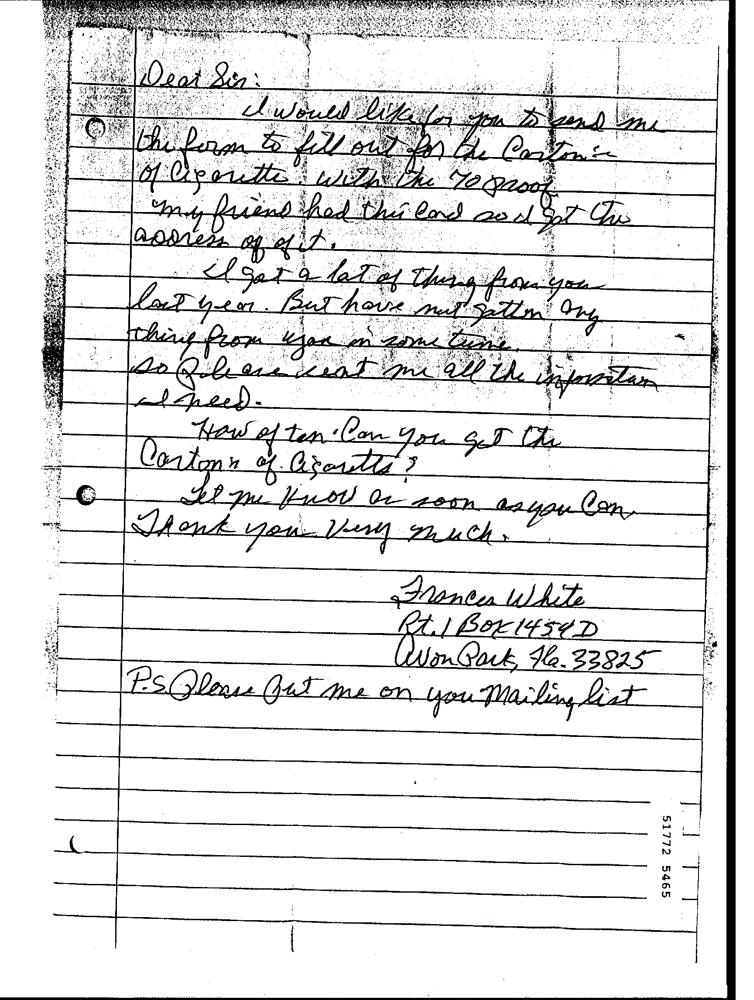 Dear Sir:
I would like for you to send me
the form to fill out for the Carton's
of Cigarette. With the 70 proof
my friend had this Card so I got the
address of of it.
I got a lot of thing from you
last year. But have not gotten any
thing from you in some time.
so Please sent me all the information
I need.
How often Can you get the
Carton's of Cigaretts?
Let me know as soon as you Can,
Thank you Very much.
Frances White
Rt. 1 Box 1454D
Avon Park, Fla. 33825
P.S. Please Put me on you Mailing list
51772 5465